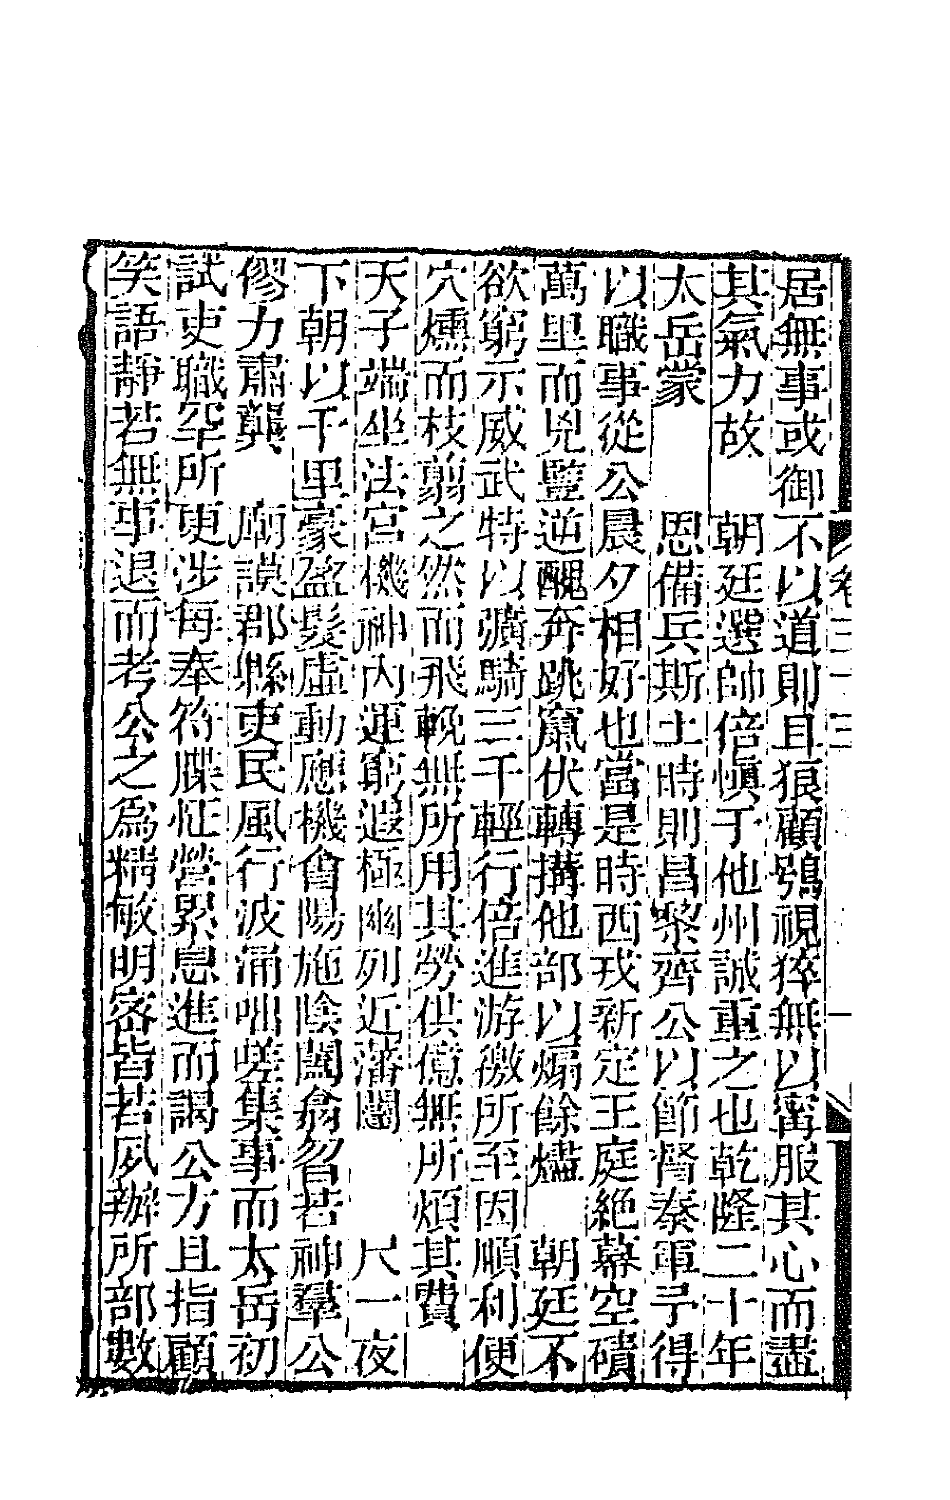 卷三十三
居無事或御不以道則且狼顧鴞視猝無以甯服其心而盡
其氣力故　朝廷選帥倍愼于他州誠重之也乾隆二十年
太岳蒙　恩備兵斯土時則昌黎齊公以節督泰軍予得
以職事從公晨夕相好也當是時西戎新定王庭絕幕空磧
萬里而兇豎逆醜奔跳竄伏轉搆他部以煽餘燼　朝廷不
欲窮示威武特以彍騎三千輕行倍進游徼所至因順利便
穴燻而枝翦之然而飛輓無所用其勞供億無所煩其費
天子端坐法宮機神內運窮遐極幽列近藩闥　尺一夜
下朝以千里豪盈髮虛動應機會陽施陰闔翕習若神羣公
僇力肅龔　廟謨郡縣吏民風行波涌咄嗟集事而太岳初
試吏職罕所更涉每奉符牒怔營累息進而謁公方且指顧
笑語靜若無事退而考公之爲精敏明密皆若夙辦所部數